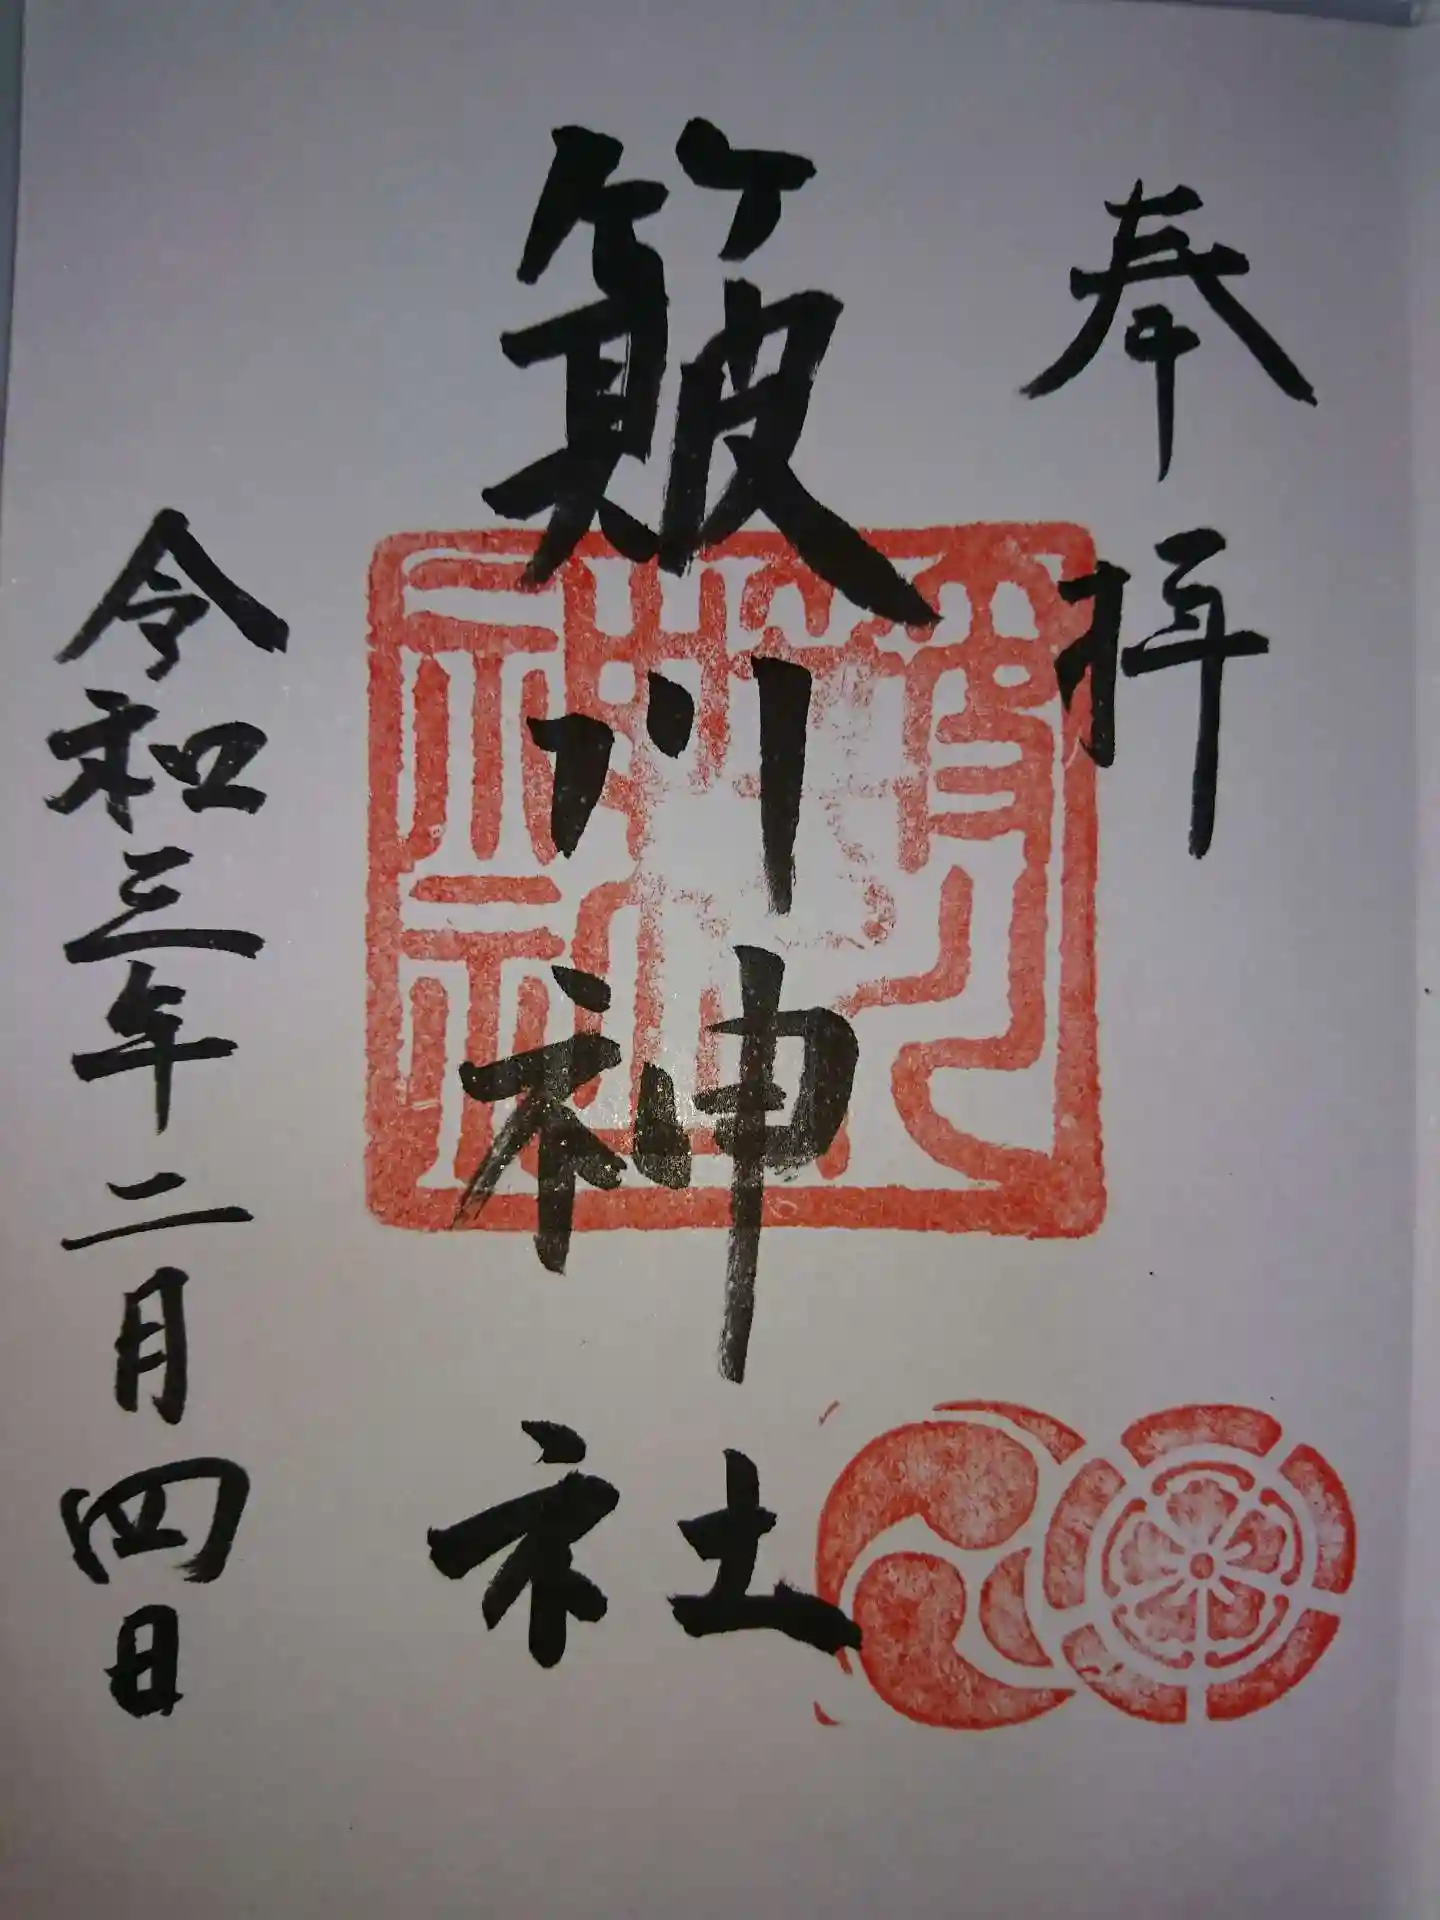 奉拝
簸川神社
令和三年二月四日
簸川
神社